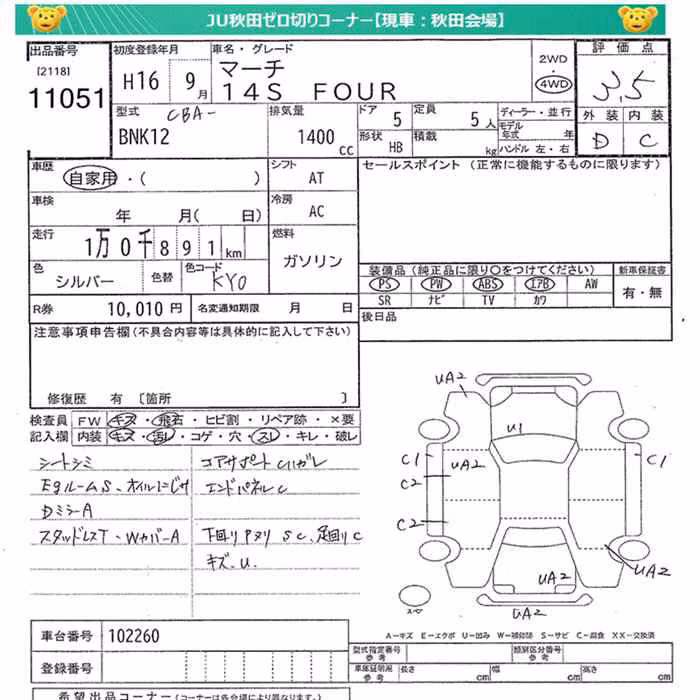 JU秋田ゼロ切りコーナー【現車：秋田会場】
出品番号
[2118]
11051
初度登録年月
H16 9月
車名・グレード
マーチ
14S FOUR
2WD
・
4WD
評価点
3.5
外装 内装
D C
型式
CBA-
BNK12
排気量
1400
CC
ドア 5
定員 5人
形状 HB
積載 kg
ディーラー・並行
モデル年式 年
ハンドル 左・右
車歴
自家用・( )
シフト
AT
セールスポイント (正常に機能するものに限ります)
車検
年 月( 日)
冷房
AC
走行
1万0千891km
燃料
ガソリン
色
シルバー
色替
色コード
KY0
装備品(純正品に限り○をつけてください)
PS PW ABS エアB AW
SR ナビ TV カワ
新車保証書
有・無
R券 10,010円
名変通知期限 月 日
後日品
注意事項申告欄(不具合内容等は具体的に記入して下さい)
修復歴 有 [箇所 ]
検査員記入欄
FW キズ・飛石・ヒビ割・リペア跡・×要
内装 キズ・汚レ・コゲ・穴・スレ・キレ・破レ
シートシミ
EgルームS、オイルにじみ
DミラーA
スタッドレスT・WカバーA
コアサポートCハガレ
エンドパネルC
下回りPヌリ SC、足回りC
キズ、U.
UA2
U1
C1
UA2
C2
C2
C1
UA2
UA2
UA2
スペ
A－キズ E－エクボ U－凹み W－補修跡 S－サビ C－腐食 XX－交換済
車台番号 102260
登録番号
型式指定番号
参考
類別区分番号
参考
車庫証明用
参考
長さ cm
幅 cm
高さ cm
希望出品コーナー(コーナーは各会場により異なります。)